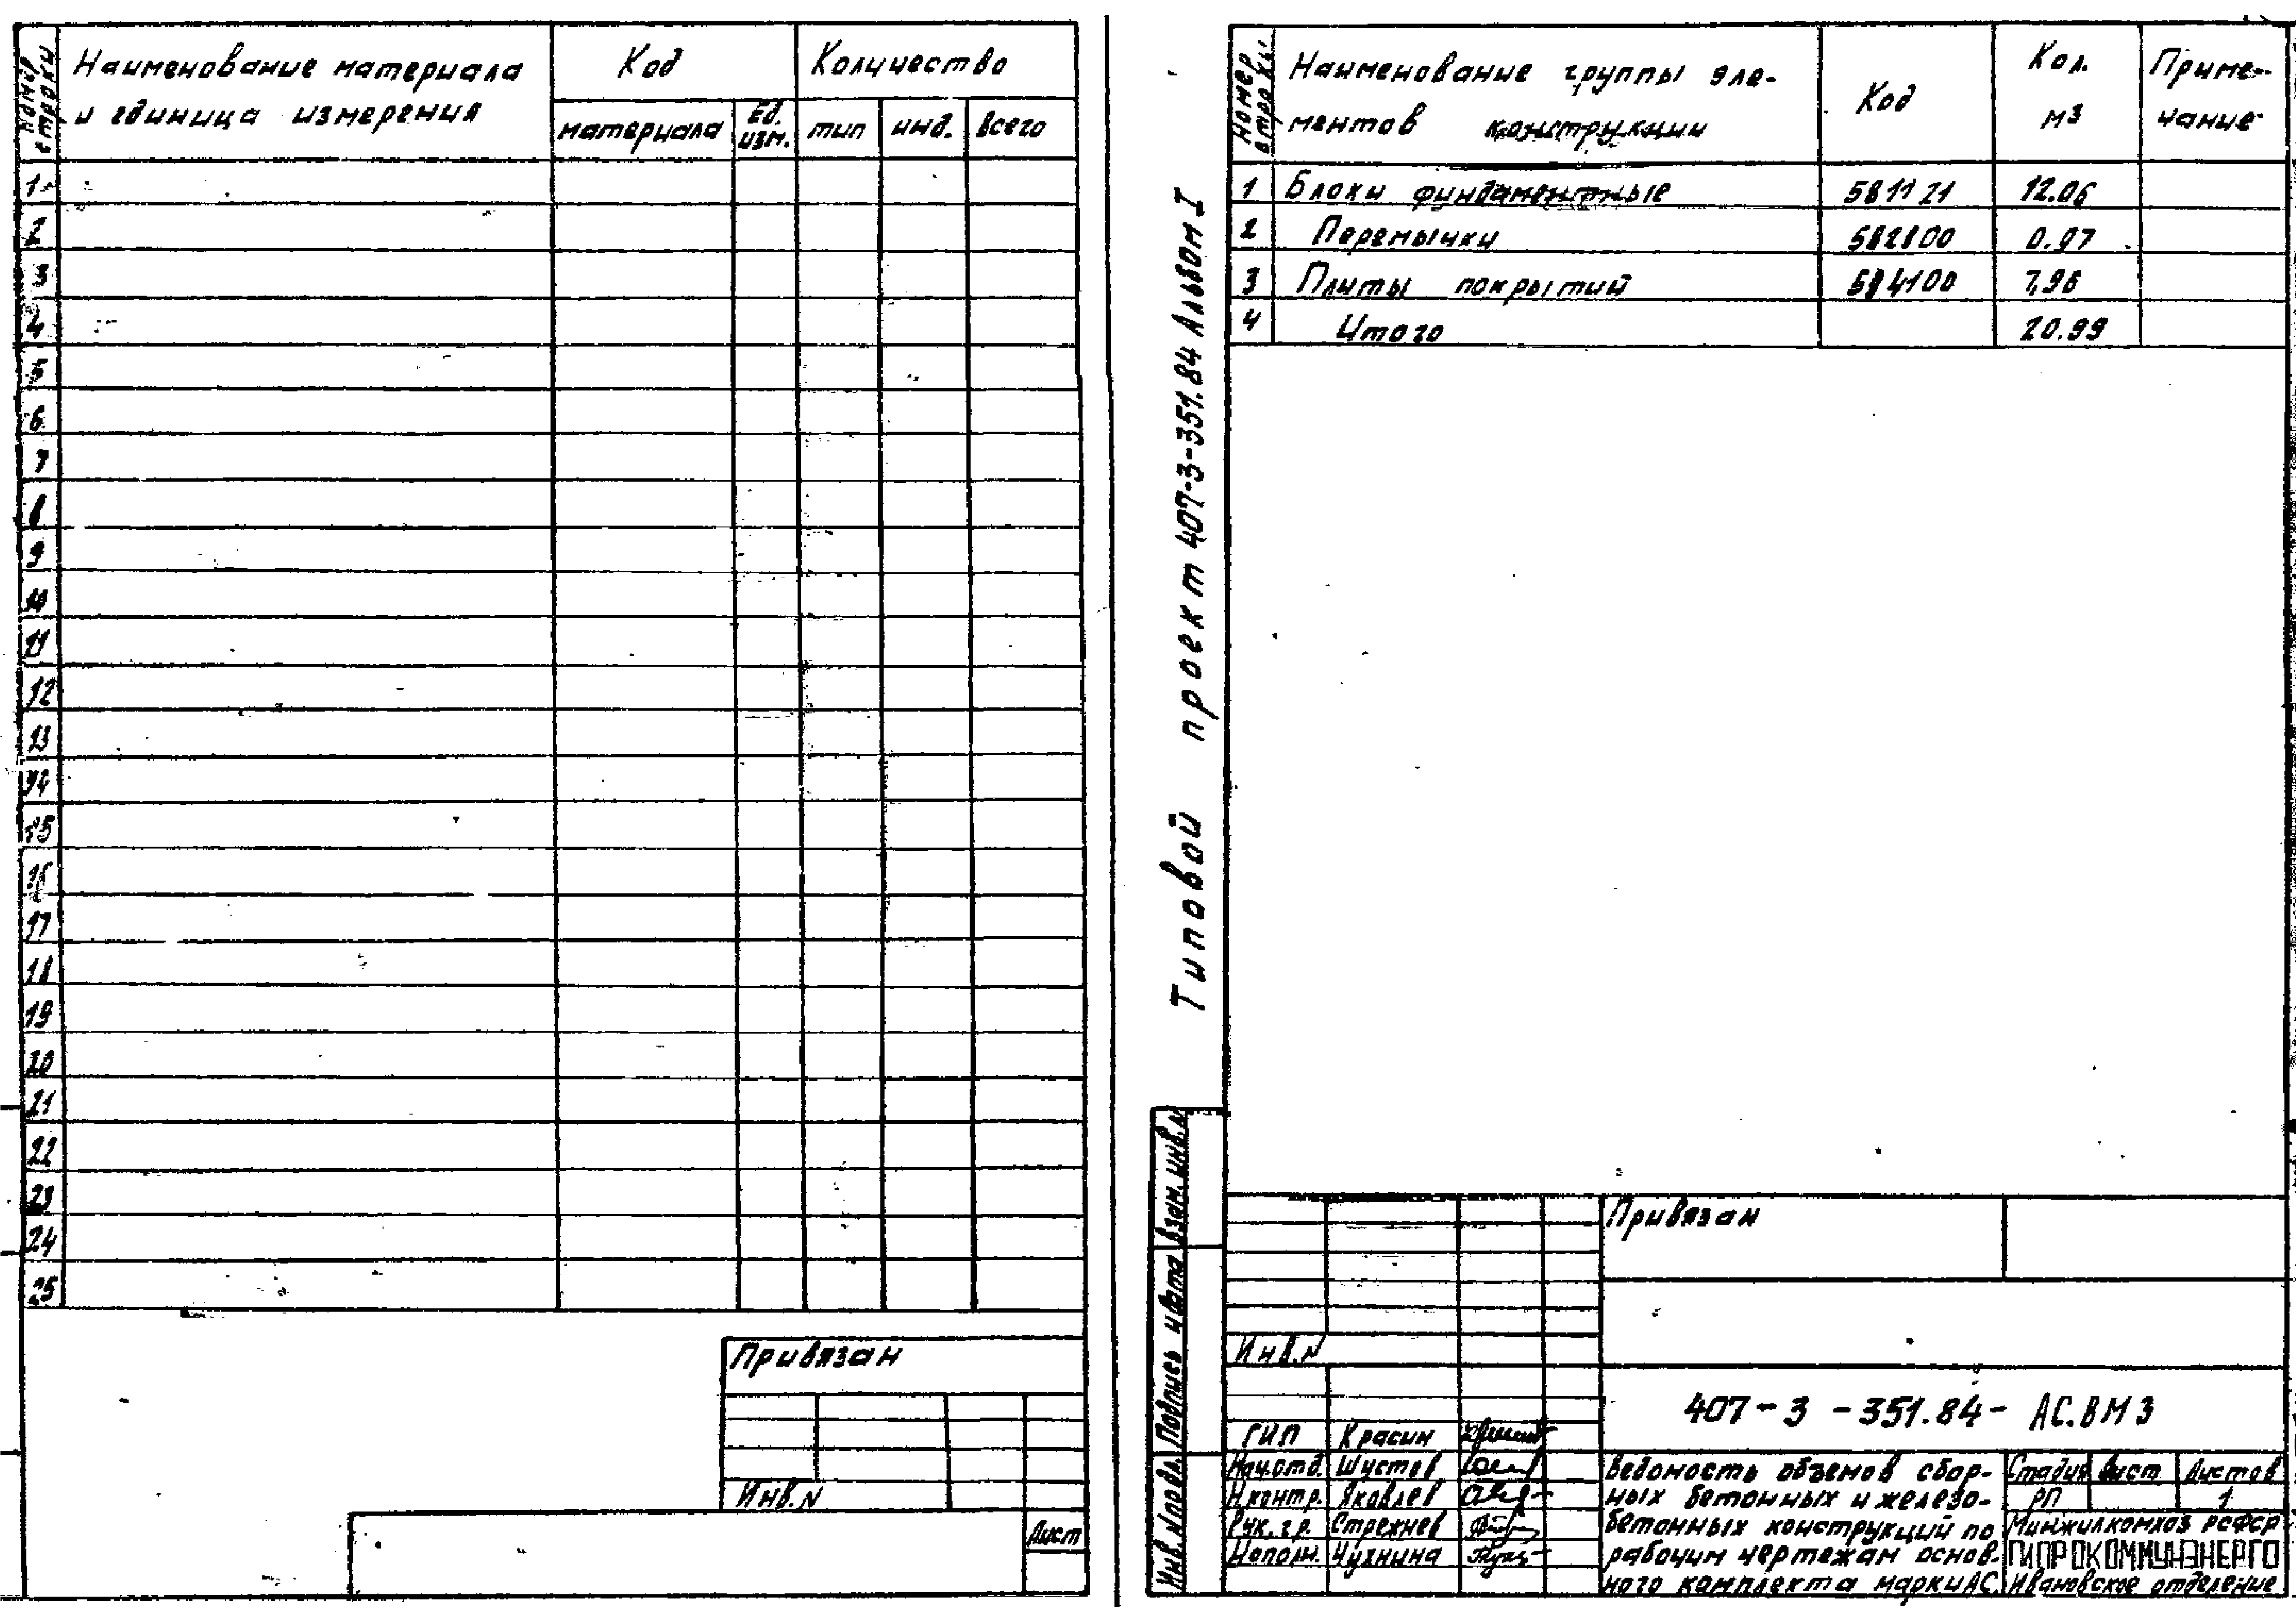 Номер строки
Наименование материала
и единица измерения
Код
Количество
материала
Ед. изм.
тип
инд.
всего
1
2
3
4
5
6
7
8
9
10
11
12
13
14
15
16
17
18
19
20
21
22
23
24
25
Привязан
Инв.N
Лист
Типовой проект 407-3-351.84 Альбом I
Взам. инв.N
Подпись и дата
Инв.N подл.
Номер строки
Наименование группы эле-
ментов конструкции
Код
Кол.
м3
Приме-
чание
1 Блоки фундаментные 581121 12.06
2 Перемычки 582800 0.97
3 Плиты покрытий 584100 7,96
4 Итого 20.99
Привязан
Инв.N
407-3-351.84- АС.ВМ3
ГИП Красин
Нач.отд. Шустов
Н.контр. Яковлев
Рук.гр. Стрежнев
Исполн. Чухнина
Ведомость объемов сбор-
ных бетонных и железо-
бетонных конструкций по
рабочим чертежам основ-
ного комплекта марки АС.
Стадия Лист Листов
РП 1
Минжилкомхоз РСФСР
ГИПРОКОММУНЭНЕРГО
Ивановское отделение